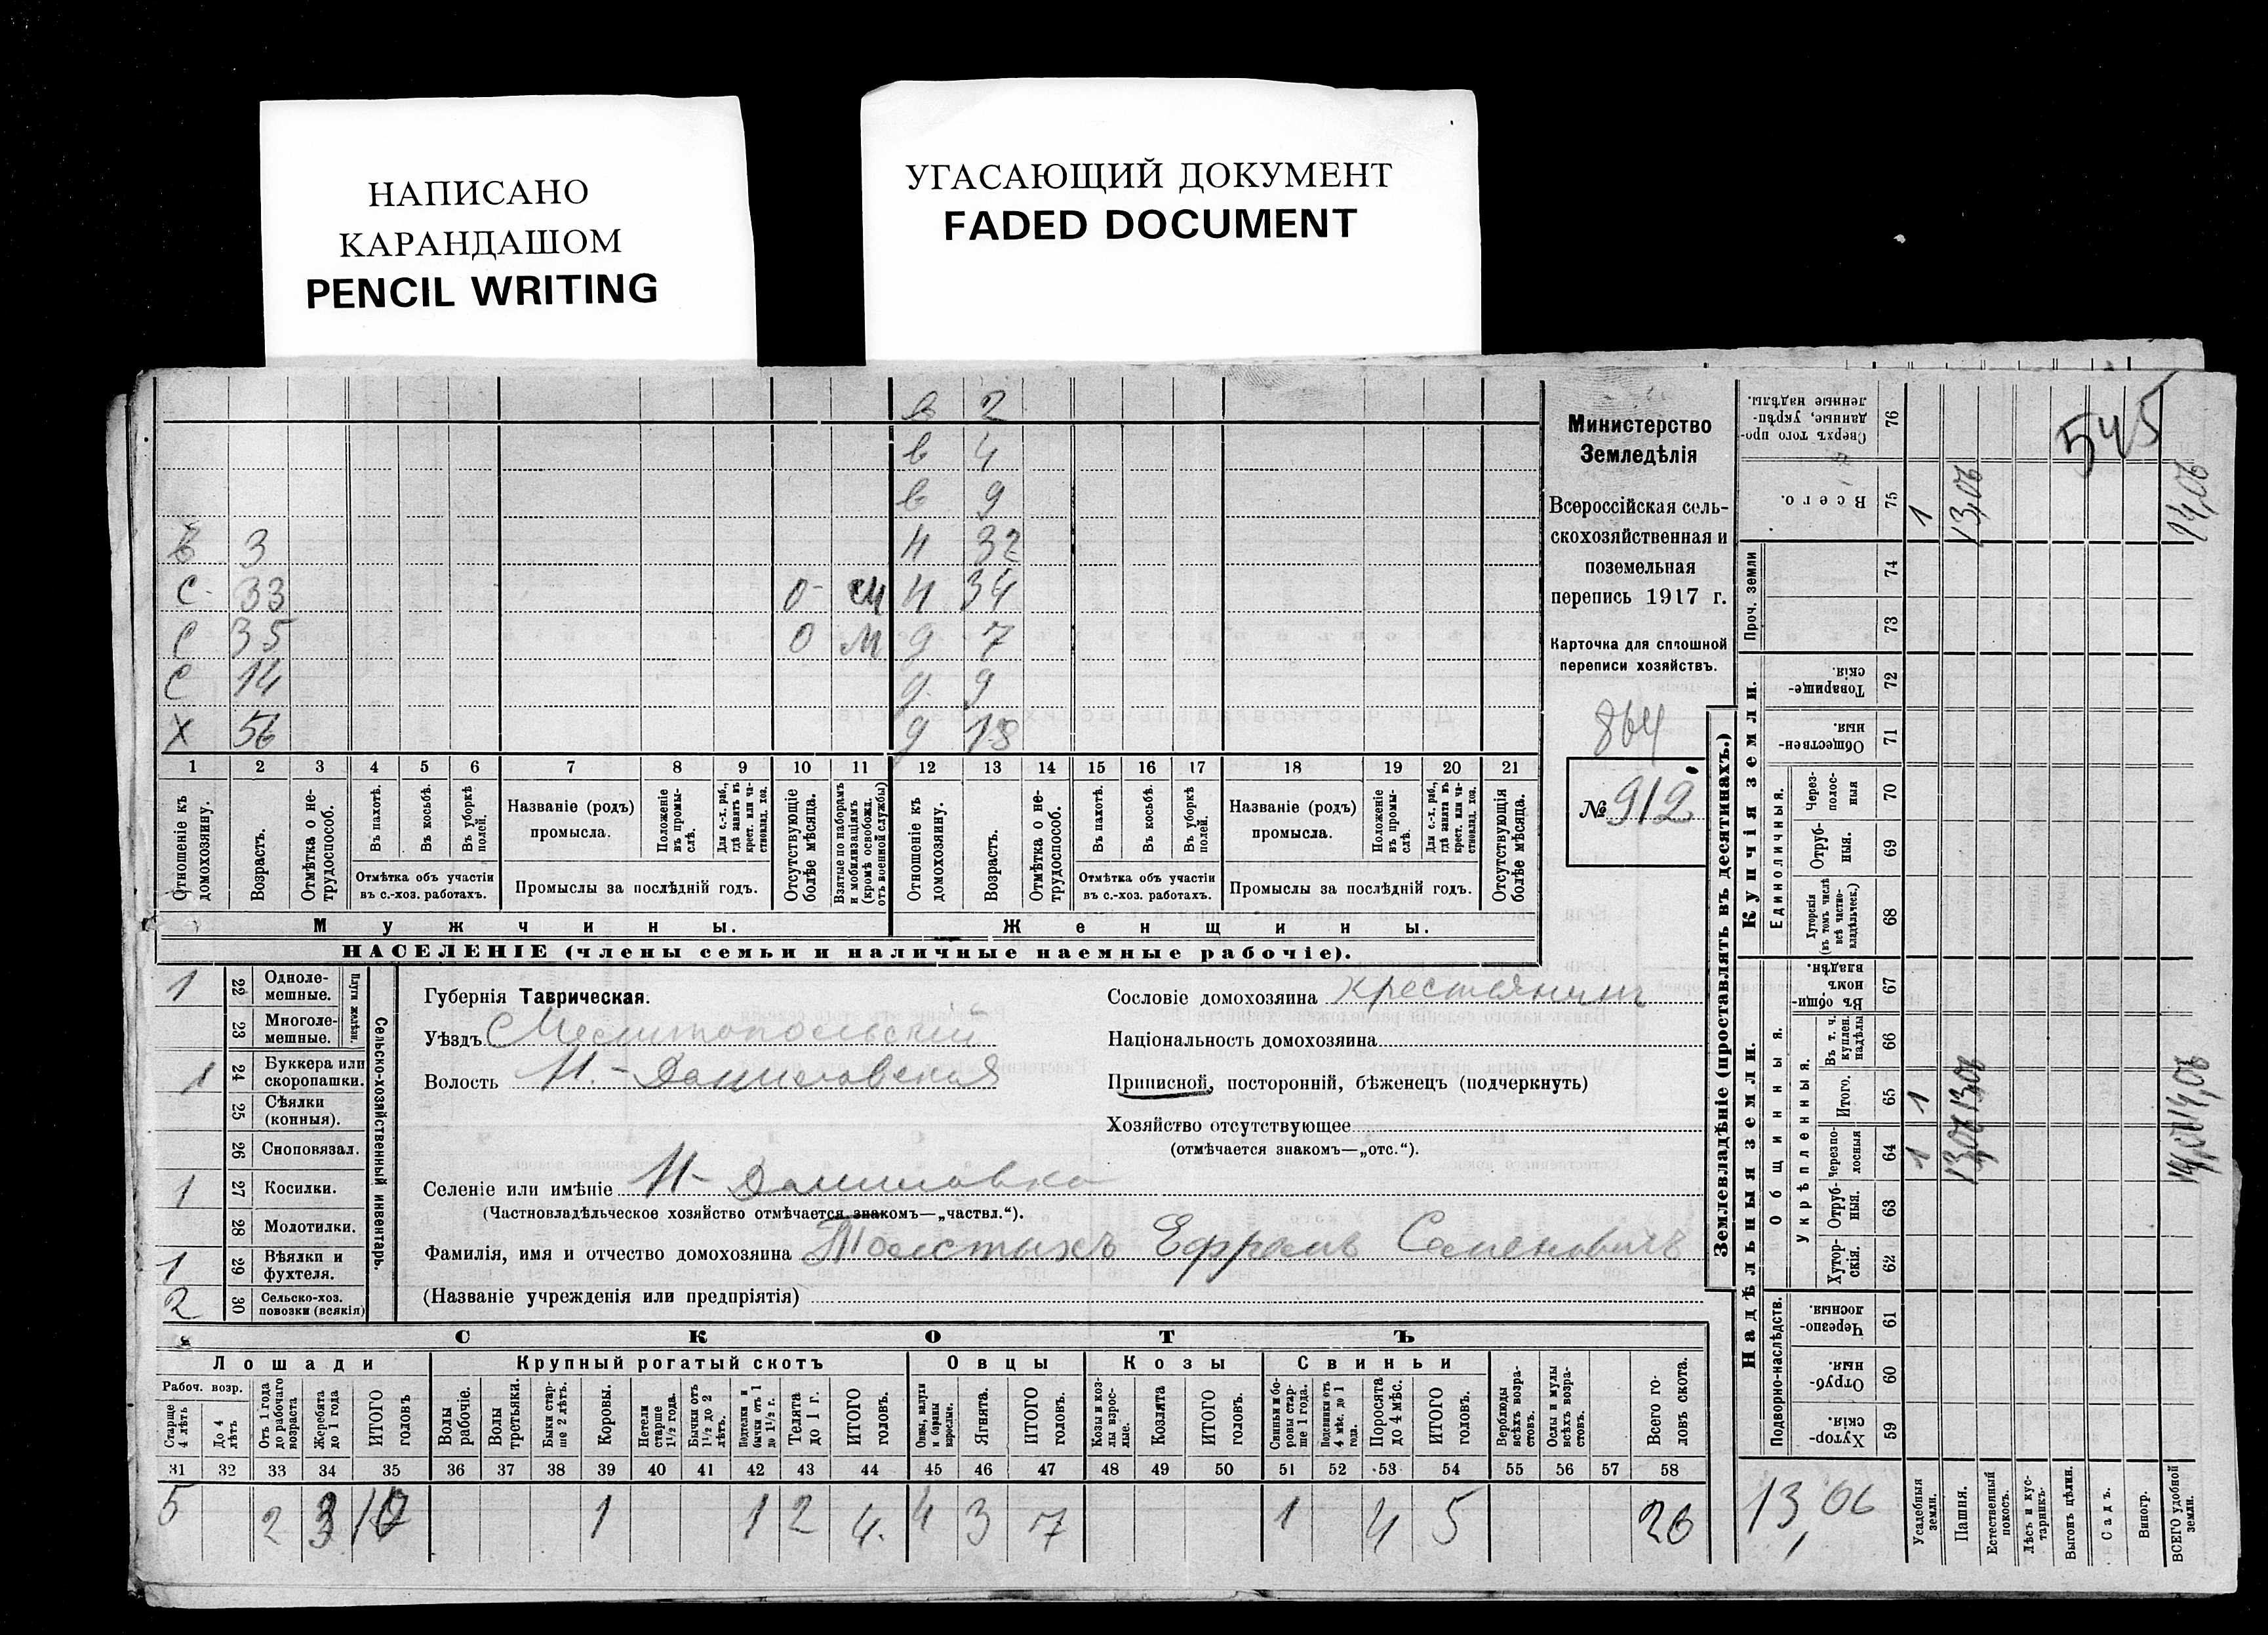 НАПИСАНО
КАРАНДАШОМ
PENCIL WRITING
УГАСАЮЩИЙ ДОКУМЕНТ
FADED DOCUMENT
в 2
в 4
в 9
3 Н 32
С 33 О СМ Н 34
С 35 О М д 7
С 14 д 9
Х 56 д 18
1 2 3 4 5 6 7 8 9 10 11 12 13 14 15 16 17 18 19 20 21
Отношеніе къ домохозяину.
Возрастъ.
Отмѣтка о нетрудоспособ.
Въ пахотѣ.
Въ косьбѣ.
Въ уборкѣ полей.
Отмѣтка объ участіи
въ с.-хоз. работахъ.
Названіе (родъ)
промысла.
Положеніе въ промыслѣ.
Для с.-х. раб., гдѣ занятъ въ крест. или частновлад. хоз.
Промыслы за послѣдній годъ.
Отсутствующіе болѣе мѣсяца.
Взятые по наборамъ и мобилизаціямъ (кромѣ освобожд. отъ военной службы)
Отношеніе къ домохозяину.
Возрастъ.
Отмѣтка о нетрудоспособ.
Въ пахотѣ.
Въ косьбѣ.
Въ уборкѣ полей.
Отмѣтка объ участіи
въ с.-хоз. работахъ.
Названіе (родъ)
промысла.
Положеніе въ промыслѣ.
Для с.-х. раб., гдѣ занятъ въ крест. или частновлад. хоз.
Промыслы за послѣдній годъ.
Отсутствующія болѣе мѣсяца.
Мужчины.
Женщины.
НАСЕЛЕНІЕ (члены семьи и наличные наемные рабочіе).
Министерство
Земледѣлія
Всероссійская сель-
скохозяйственная и
поземельная
перепись 1917 г.
Карточка для сплошной
переписи хозяйствъ.
864
№ 912
1 22 Однолемешные.
23 Многолемешные.
Плуги желѣзн.
1 24 Буккера или скоропашки.
25 Сѣялки (конныя).
26 Сноповязал.
1 27 Косилки.
28 Молотилки.
1 29 Вѣялки и фухтеля.
2 30 Сельско-хоз. повозки (всякія)
Сельско-хозяйственный инвентарь.
Губернія Таврическая.
Уѣздъ Мелитопольскій
Волость Н.-Даниловская
Сословіе домохозяина крестьянинъ
Національность домохозяина
Приписной, посторонній, бѣженецъ (подчеркнуть)
Хозяйство отсутствующее
(отмѣчается знакомъ—„отс.“).
Селеніе или имѣніе Н-Даниловка
(Частновладѣльческое хозяйство отмѣчается знакомъ—„частвл.“).
Фамилія, имя и отчество домохозяина Толстыхъ Ефремъ Семеновичъ
(Названіе учрежденія или предпріятія)
СКОТЪ
Лошади
Крупный рогатый скотъ
Овцы
Козы
Свиньи
Рабоч. возр.
Старше 4 лѣтъ
До 4 лѣтъ
Отъ 1 года до рабочаго возраста
Жеребята до 1 года
ИТОГО головъ
Волы рабочіе.
Волы третьяки.
Быки старше 2 лѣтъ.
Коровы.
Нетели старше 1½ года.
Бычки отъ 1½ до 2 лѣтъ.
Подтелки и бычки отъ 1 до 1½ г.
Телята до 1 г.
ИТОГО головъ.
Овцы, валухи и бараны взрослые.
Ягнята.
ИТОГО головъ.
Козы и козлы взрослые.
Козлята
ИТОГО головъ.
Свиньи и боровы старше 1 года.
Подсвинки отъ 4 мѣс. до 1 года.
Поросята до 4 мѣс.
ИТОГО головъ.
Верблюды всѣхъ возрастовъ.
Ослы и мулы всѣхъ возрастовъ.
Всего головъ скота.
31 32 33 34 35 36 37 38 39 40 41 42 43 44 45 46 47 48 49 50 51 52 53 54 55 56 57 58
5 2 3 10 1 1 2 4. 4 3 7 1 4 5 26
Землевладѣніе (проставлять въ десятинахъ.)
Купчія земли.
Надѣльныя земли.
Сверхъ того проданные, укрѣпленные надѣлы. 76
Всего. 75 1 13,06 14,06
545
Проч. земли 74 73
Товарищескія. 72
Общественныя. 71
Единоличныя.
Черезполосныя 70
Отрубныя. 69
Хуторскія (въ томъ числѣ всѣ частновладѣльческ.) 68
Общинныя.
Въ общинномъ владѣн. 67
Укрѣпленныя.
Въ т. ч. куплен. надѣлы 66
Итого. 65 1 13,06 14,06
черезполосныя 64 1 13,06
Отрубныя. 63
Хуторскія. 62
Подворно-наслѣдств.
Черезполосныя. 61
Отрубныя. 60
Хуторскія. 59
13,06
Усадебныя земли.
Пашня.
Естественный покосъ.
Лѣсъ и кустарникъ.
Выгонъ цѣлин.
Садъ.
Виногр.
ВСЕГО удобной земли.